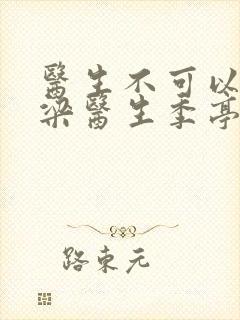 醫生不可以
梁醫生季亭
路東元